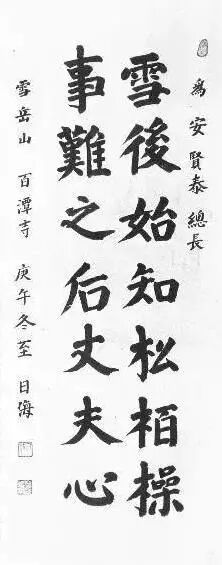 為 安賢泰 總長
雪後始知松栢操
事難之后丈夫心
雪岳山 百潭寺 庚午冬至 日海